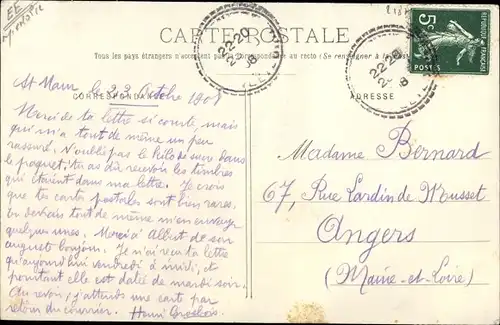 CARTE POSTALE
Tous les pays étrangers n'acceptent pas la Correspondance au recto (Se renseigner à la Poste)
CORRESPONDANCE
ADRESSE
St Maur, le 22 Octobre 1908
Merci de ta lettre si courte, mais
qui m'a tout de même un peu
rassuré. N'oublie pas le kilo de sucre dans
le paquet; tu as dû recevoir les timbres
qui étaient dans ma lettre. Je crois
que tes cartes postales sont bien rares.
Tu devrais tout de même m'en envoyer
quelques unes. Merci à Albert de son
bonjour. Je n'ai reçu ta lettre
qu'aujourd'hui vendredi à midi, et
pourtant elle est datée de mardi soir.
Au revoir, j'attends une carte par
retour du courrier. Henri
Madame Bernard
67, Rue Lardin de Musset
Angers
(Maine-et-Loire)
5
POSTES
REPUBLIQUE FRANÇAISE